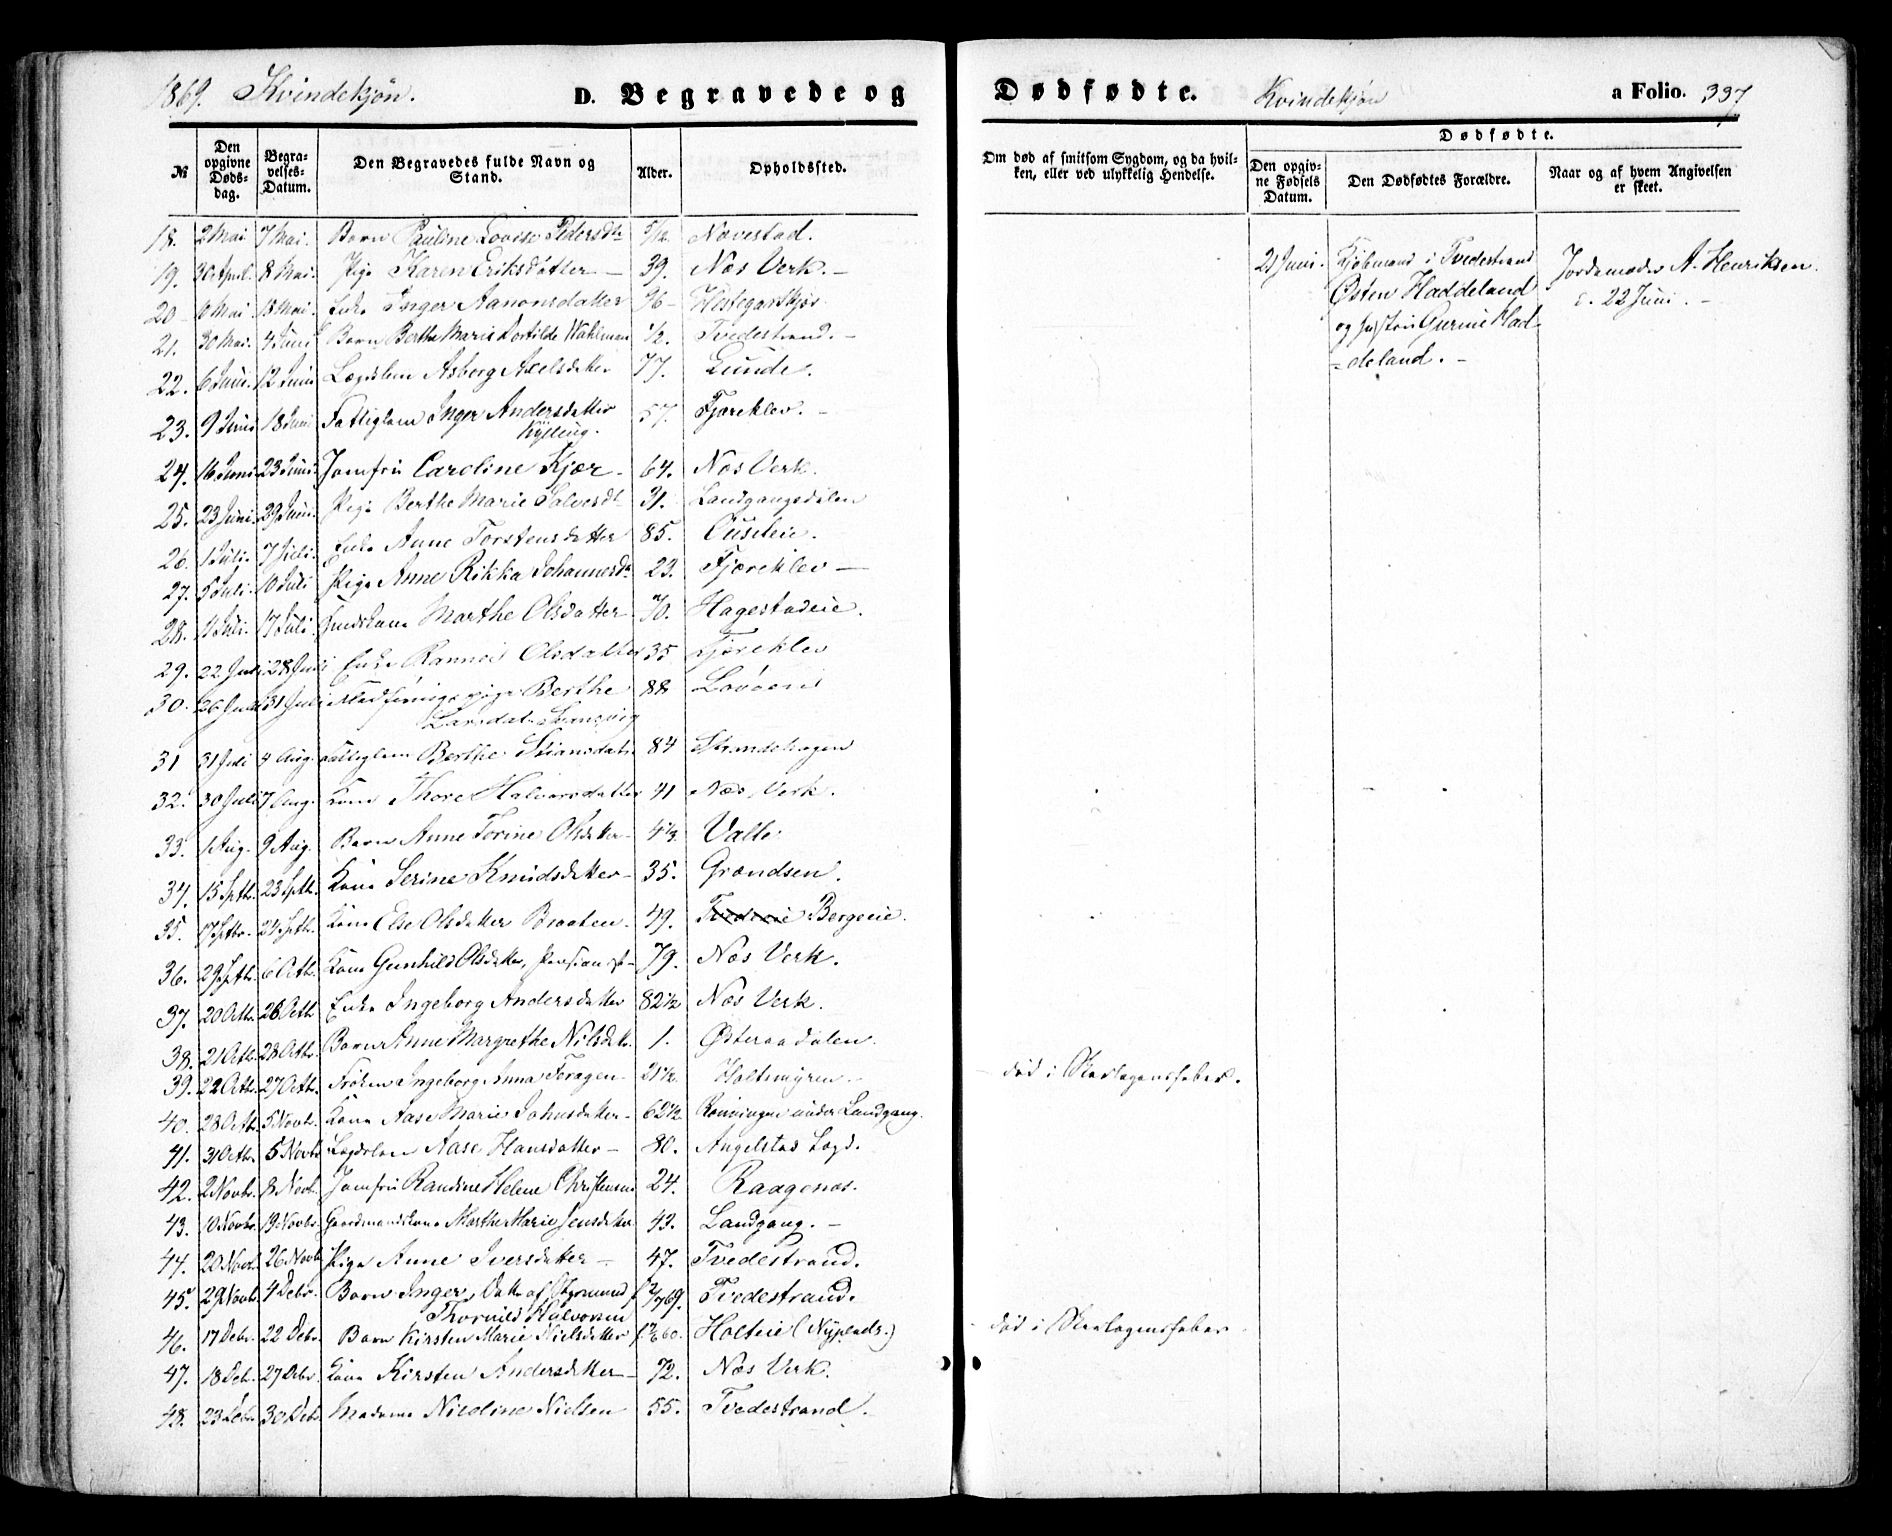 1869. Kvindekjøn. D. Begravede og Dødfødte. Kvindekjøn a Folio. 337
№ Den opgivne Dødsdag. Begravelses-Datum. Den Begravedes fulde Navn og Stand. Alder. Opholdssted.
Om død af smitsom Sygdom, og da hvilken, eller ved ulykkelig Hendelse. Dødfødte. Den opgivne Fødsels Datum. Den Dødfødtes Forældre. Naar og af hvem Angivelsen er skeet.
18. 2 Mai 7 Mai. Barn Pauline Lovise Pedersdtr 5/12. Navestad.
19. 30 April. 8 Mai. Pige Karen Eriksdatter — 39. Næs Verk. —
20 10 Mai 18 Mai. Enke Inger Aanonsdatter 96 —
21. 30 Mai. 4 Juni Barn Berthe Marie Wahlman 1/2. Tvedestrand. —
22. 6 Juni. 12 Juni Lægdslem Asborg Axelsdatter 77. Lunde.
23. 9 Juni 18 Juni Fattiglem Inger Andersdatter 57. Fjæreklev. —
Kylling.
24. 16 Juni 23 Juni. Jomfru Caroline Kjær — 64. Næs Verk.
25. 23 Juni. 29 Juni. Pige Berthe Marie Salvesdtr 31. Landgangsdalen
26. 1 Juli. 7 Juli. Enke Anne Torstensdatter 85.
27. 5 Juli. 10 Juli Pige Anne Rikka Johannesdtr 23. Fjæreklev —
28. 11 Juli. 17 Juli. Marthe Olsdatter 70. Hagestadeie.
29. 22 Juli 28 Juli Enke Olsdatter 35 Fjæreklev
30. 26 Juli 31 Juli Berthe 88
Larsdatr
31 31 Juli 4 Aug. Fattiglem Berthe Stiansdatr 84 Strandehagen
32. 30 Juli 7 Aug. Kone Thore Halvorsdatter 41 Næs Verk.
33. 1 Aug. 9 Aug. Barn Anne Torine Olsdatter — 4 1/3. Valle
34. 15 Septb. 23 Septb. Kone Serine Knudsdatter — 35. Grændsen.
35. 17 Septbr. 24 Septb. Kone Else Olsdatter Braaten. 49. Bergeeie.
36. 29 Septb. 6 Octb. Kone Gunhild Olsdatter, 79. Næs Verk.
37. 20 Octb. 26 Octb Enke Ingeborg Andersdatter 82 1/2 Næs Verk.
38. 21 Octb. 28 Octbr. Barn Anne Margrethe Nilsdatr. 1. Østeraadalen.
39. 22 Octb. 27 Octb. Frøken Ingeborg Anna 21 1/2. Holtmyren. — død i Skarlagensfeber.
40. 28 Octb. 5 Novb. Kone Aase Marie Johnsdatter — 62 1/2 under Landgang.
41. 31 Octb. 5 Novbr Lægdslem Aase Hansdatter — 80. Angelstad Lægd.
42. 2 Novbr. 8 Novb. Jomfru Randine Helene Christensen 24. Raagenæs.
43. 10 Novbr. 19 Novbr. Gaardmandskone Marthe Marie Jensdatter 43. Landgang. —
44. 20 Novb. 26 Novb Pige Anne Iversdatter — 47. Tvedestrand.
45. 29 Novbr. 4 Debr. Barn Inger, Datter af Tvedestrand.
Thorvild Halvorsen
46. 17 Debr. 22 Debr. Barn Kirsten Marie Nielsdatter Holteie — død i Skarlagensfeber
47. 18 Debr. 27 Debr. Kone Kirsten Andersdatter — 72. Næs Verk.
48. 23 Debr. 30 Debr. Madame Nicoline Nielsen 55. Tvedestrand.
21 Juni. Kjøbmand i Tvedestrand Jordemoder A. Henriksen.
Østen Haddeland d. 22 Juni. —
og Hustru Gurine Had-
deland. —